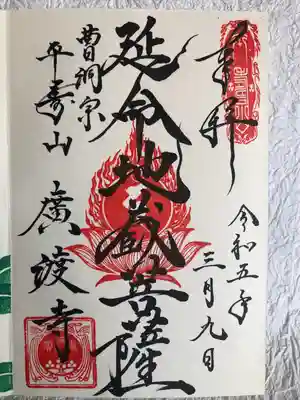 奉拝
令和五年
三月九日
延命地蔵菩薩
曹洞宗
平壽山
廣渡寺